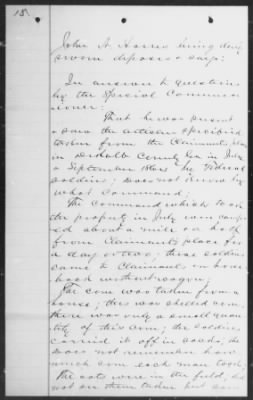 15.
John A. Harris being duly
sworn deposes & says:
In answer to questions
by the Special Commiss
ioner:
That he was present
& saw the articles specified
taken from the Claimants place
in DeKalb County Ga in July
& September 1864 by Federal
soldiers; does not know by
what command;
The command which took
the property in July were camp
ed about a mile or half
from Claimants place for
a day or two; these soldiers
came to Claimants on horse
back without wagons;
The corn was taken from a
house; this was shelled corn;
there was only a small quan
tity of this corn; the soldiers
carried it off in sacks; he
does not remember how
much corn each man took;
The oats were in the field, did
not see them taken but saw